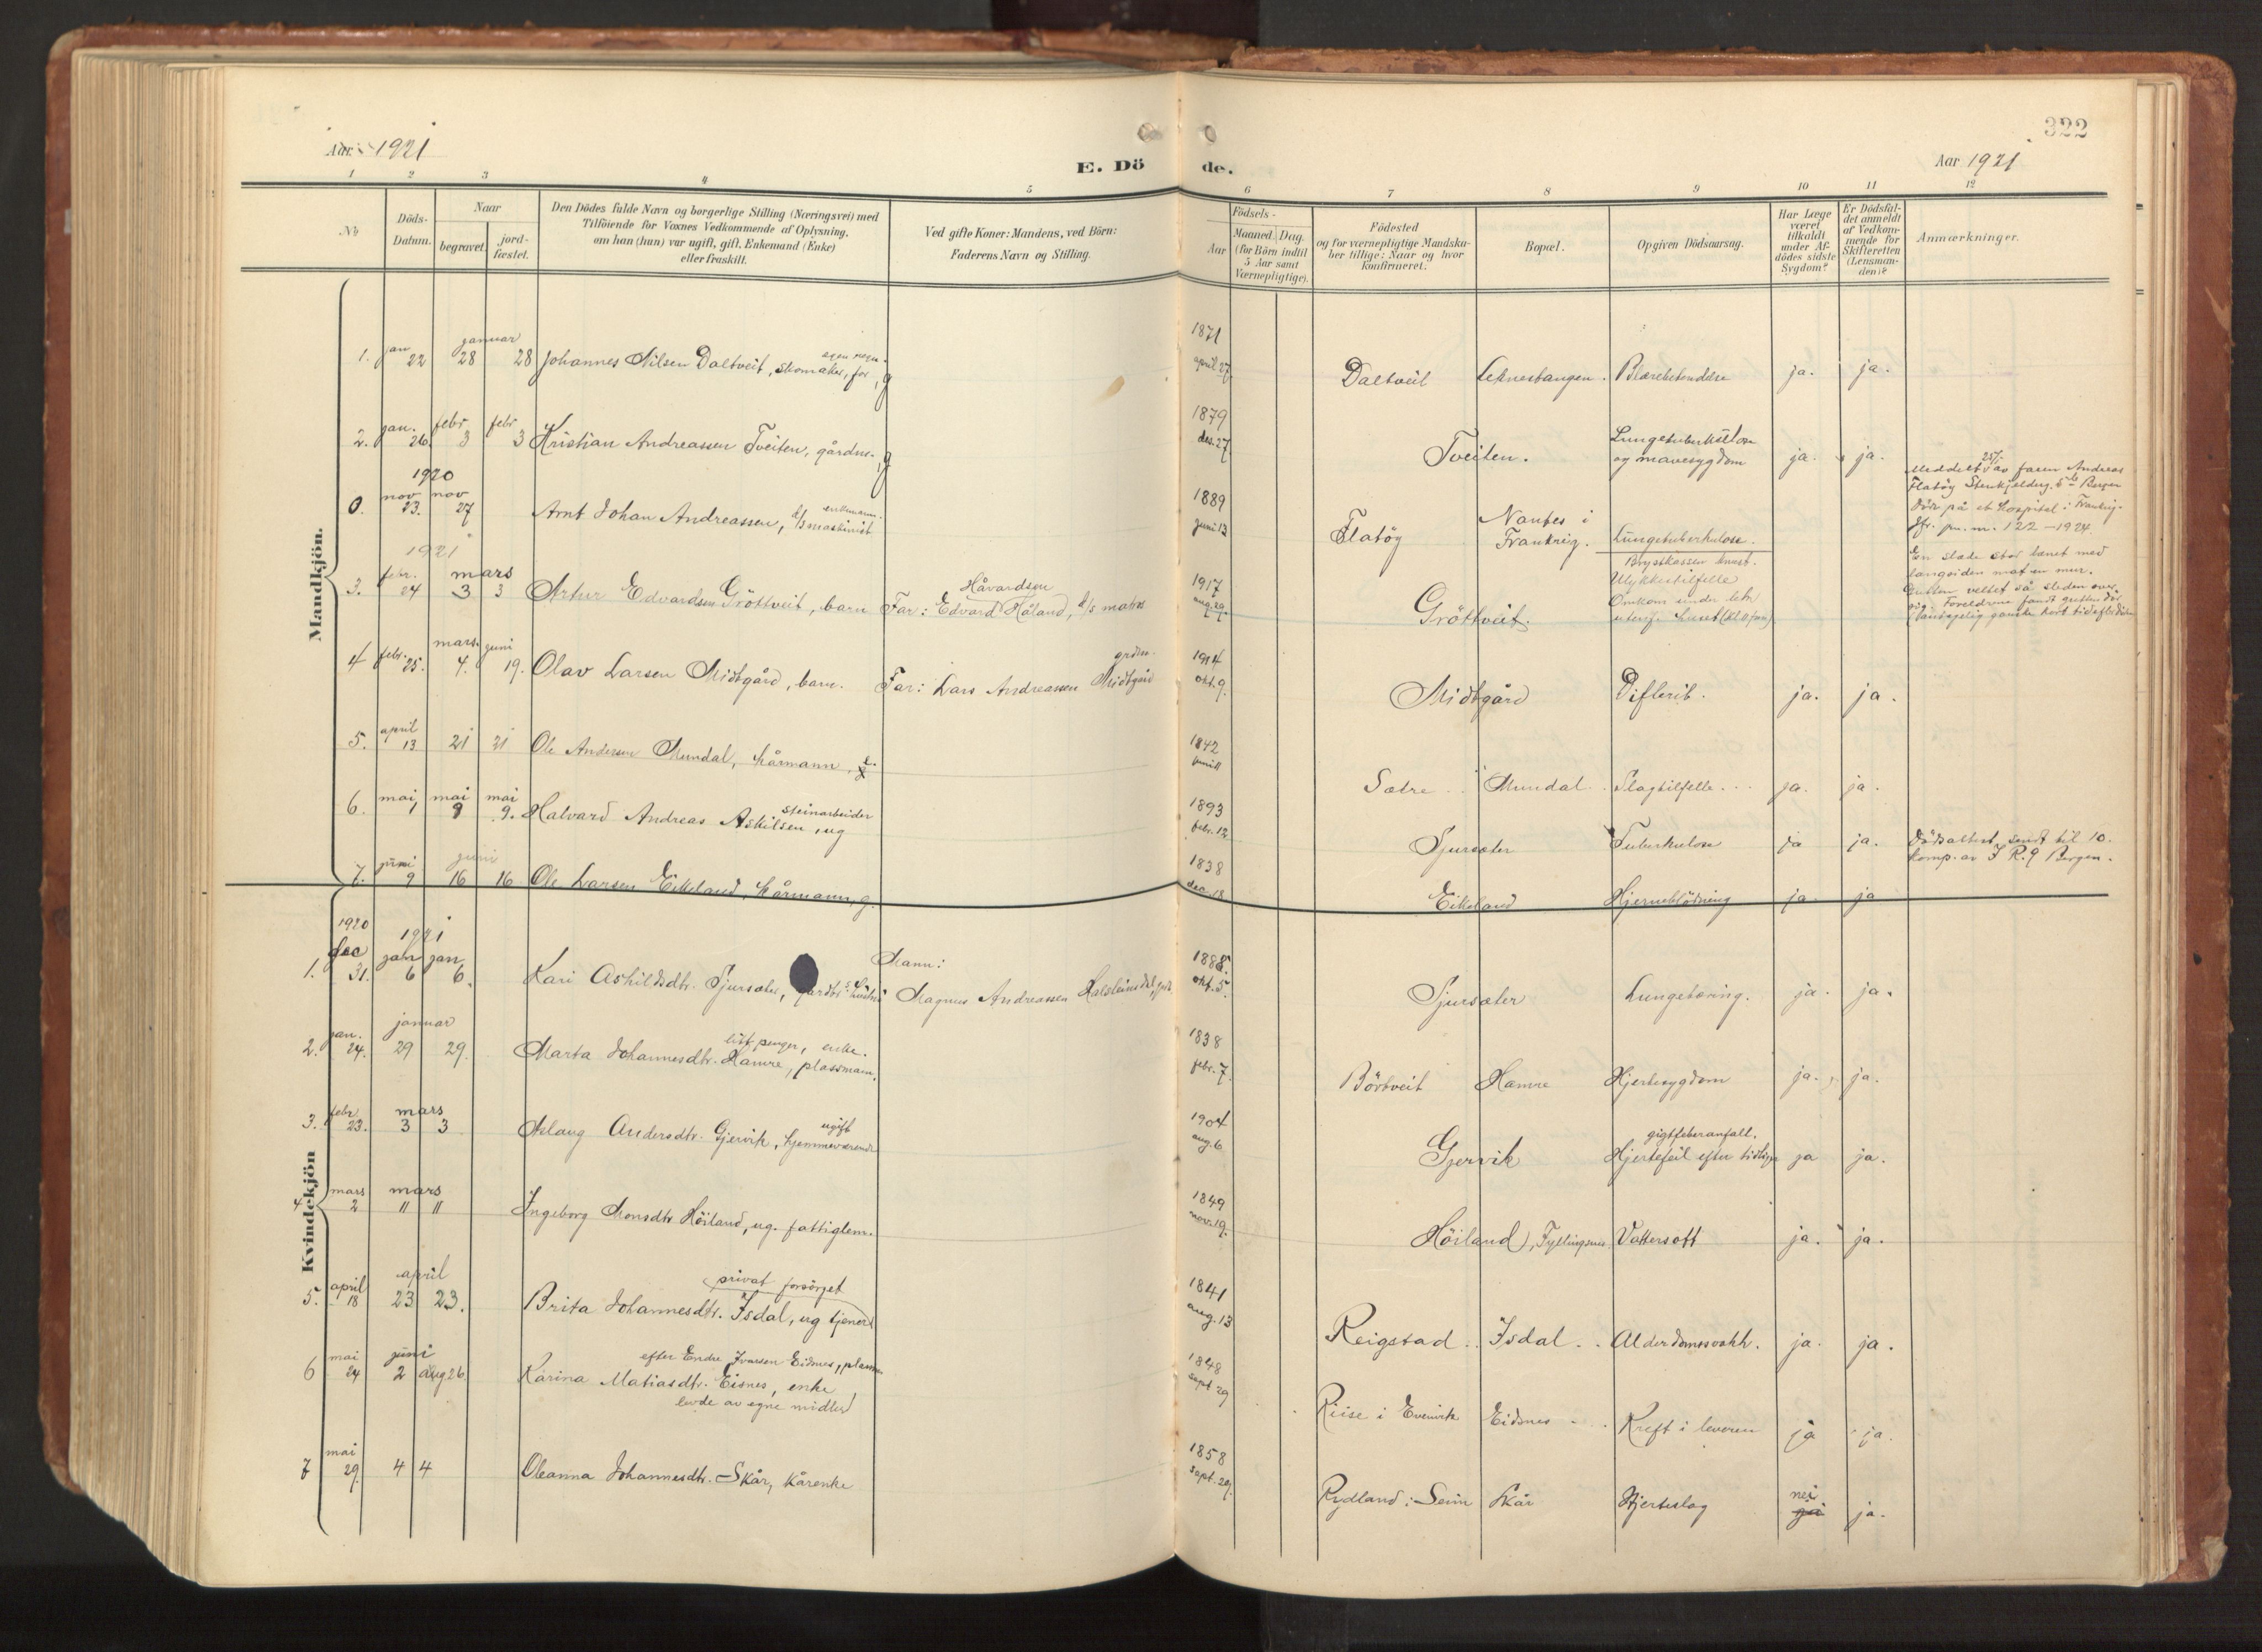 322
Aar 1921
E. Dö de.
Aar 1921
1 2 3 4 5 6 7 8 9 10 11 12
No
Döds-
Datum.
Naar
begravet.
jord-
fæstet.
Den Dödes fulde Navn og borgerlige Stilling (Næringsvei) med
Tilföiende for Voxnes Vedkommende af Oplysning,
om han (hun) var ugift, gift, Enkemand (Enke)
eller fraskilt.
Ved gifte Koner: Mandens, ved Börn:
Faderens Navn og Stilling.
Födsels-
Aar
Maaned. Dag.
(for Börn indtil
5 Aar samt
Værnepligtige).
Födested
og for værnepligtige Mandska-
ber tillige: Naar og hvor
konfirmeret.
Bopæl.
Opgiven Dödsaarsag.
Har Læge
været
tilkaldt
under Af-
dödes sidste
Sygdom?
Er Dödsfal-
det anmeldt
af Vedkom-
mende for
Skifteretten
(Lensman-
den)?
Anmærkninger.
Mandkjön.
1. jan 22 januar 28 28 Johannes Nilsen Daltveit, skomaker, for egen regn., g 1871 april 27 Daltveit Leknestangen. Blærebetendelse ja. ja.
2. jan. 26. febr. 3 febr 3 Kristian Andreassen Tveiten, gårdm., g 1879 des. 27 Tveiten. Lungetuberkulose
og mavesygdom ja. ja.
1920
0. nov 23. nov 27 Arnt Johan Andreassen, d/s maskinist enkemann. 1889 juni 13 Flatöy Nantes i
Frankrig. Lungetuberkulose.
Meddelt 25/5 av faren Andreas
Flatöy Stenkjelderg. 5b Bergen
Död på et Hospital i Frankrig.
Jfr. pm. nr. 122 - 1924.
1921
3. febr. 24 mars 3 3 Artur Edvardsen Gröttveit, barn Far: Edvard Håvardsen Håland, d/s matros 1917 aug. 29. Gröttveit. Brystkassen knust.
Ulykkestilfelle
Omkom under lek
utenf. huset
En slæde stod lænet med
langsiden mot en mur.
Gutten veltet så sleden over
sig. Foreldrene fandt gutten död
4 febr. 25. mars. 4. juni 19. Olav Larsen Midtgård, barn. Far: Lars Andreassen Midtgård grdm. 1914 okt. 9. Midtgård Difterit. ja. ja.
5. april 13 21 21 Ole Andersen Mundal, kårmann, e. 1842 Sætre Mundal Slagtilfelle ja. ja.
6. mai 1 mai 9 mai 9. Halvard Andreas Askilsen, ug steinarbeider 1893 febr. 12 Sjursæter Tuberkulose ja ja. Dödsattest sendt til 10.
komp. av I R. 9 Bergen.
7. juni 9 juni 16 16 Ole Larsen Eikeland, kårmann, g. 1838 dec. 18 Eikeland Hjerneblödning ja ja
Kvindekjön
1920 1921
1. dec 31. jan 6 jan 6. Kari Askildsdtr. Sjursæter, gardbr.s hustru Mann:
Magnus Andreassen Halsteinsdal 1888. okt. 5. Sjursæter Lungetæring. ja. ja.
2. jan. 24. januar 29 29. Marta Johannesdtr. Hamre, plassmann, enke. 1838 febr. 7. Börtveit Hamre Hjertesygdom ja. ja.
3. febr 23. mars 3 3 Aslaug Andersdtr. Gjervik, hjemmeværende ugift 1904 aug. 6 Gjervik Hjertefeil efter tidligere
gigtfeberanfall. ja ja.
4 mars 2 mars 11 11 Ingeborg Monsdtr Höiland, ug. fattiglem. 1849 nov. 19. Höiland, Fyllingsnes Vattersott ja. ja.
5. april 18 april 23 23. Brita Johannesdtr. Isdal, ug tjener
privat forsörget 1841 aug. 13 Reigstad Isdal Alderdomssvakh. ja. ja.
6 mai 24 juni 2 aug 26. Karina Matiasdtr. Eidnes, enke
efter Endre Ivarsen Eidnes, plassm
levde av egne midler 1848 sept 29 Riise i Evenvik Eidsnes Kreft i leveren ja ja.
7 mai 29. 4 4 Oleanna Johannesdtr. Skår, kårenke 1858 sept. 29. Rydland i Seim Skår Hjerteslag nei ja ja.